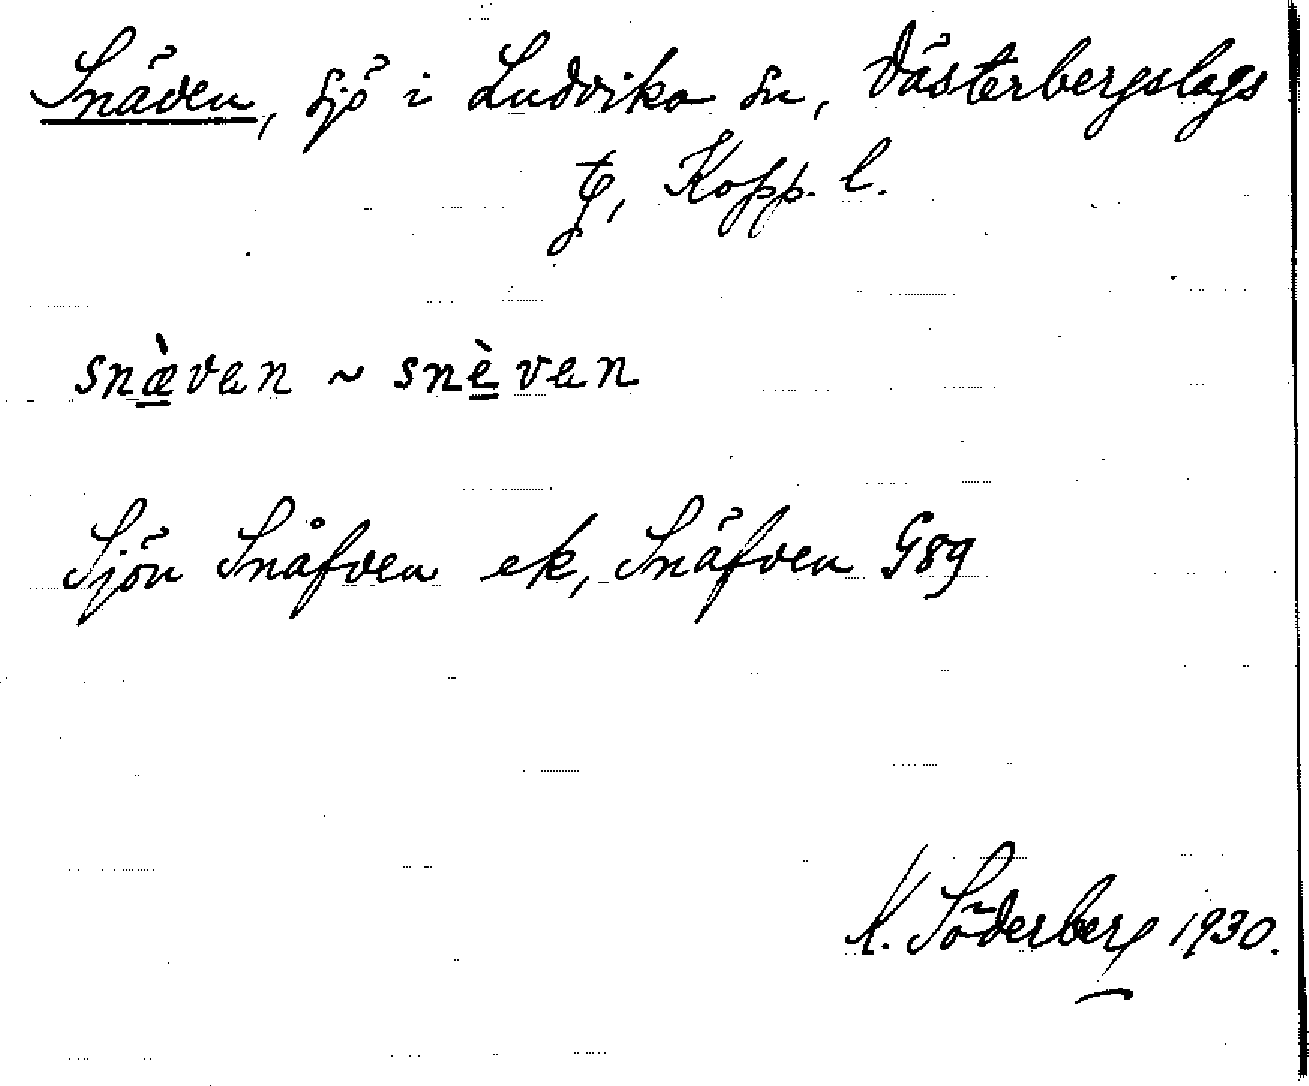 Snäven, sjö i Ludvika sn, Västerbergslags
tg, Kopp. l.
snæ̀ven ~ snèven
Sjön Snåfven ek, Snäfven G89
K. Söderberg 1930.